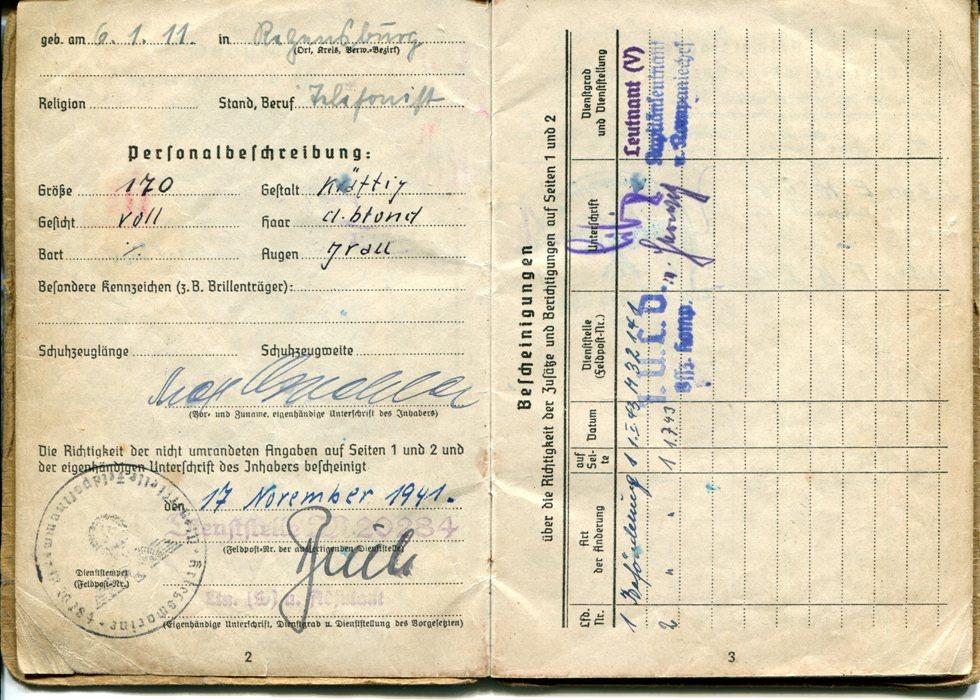 geb. am 6. 1. 11. in Regensburg
(Ort, Kreis, Verw.-Bezirk)
Religion Stand, Beruf Telefonist
Personalbeschreibung:
Größe 170 Gestalt kräftig
Gesicht voll Haar d.blond
Bart ⁒ Augen grau
Besondere Kennzeichen (z.B. Brillenträger):
Schuhzeuglänge Schuhzeugweite
Max
(Vor- und Zuname, eigenhändige Unterschrift des Inhabers)
Die Richtigkeit der nicht umrandeten Angaben auf Seiten 1 und 2 und
der eigenhändigen Unterschrift des Inhabers bescheinigt
den 17 November 1941.
Dienststelle 20284
(Feldpost-Nr. der ausfertigenden Dienststelle)
Dienststempel
(Feldpost-Nr.)
Kriegsmarine
Ltn. u. Adjutant
(Eigenhändige Unterschrift, Dienstgrad u. Dienststellung des Vorgesetzten)
2
Bescheinigungen
über die Richtigkeit der Zusätze und Berichtigungen auf Seiten 1 und 2
Lfd. Nr.
Art der Änderung
auf Sei- te
Datum
Dienststelle (Feldpost-Nr.)
Unterschrift
Dienstgrad und Dienststellung
1 Beförderung 1 1.I.43 Leutnant (V)
2 " " 1 1.7.43 Kapitänleutnant
u. Kompaniechef
3